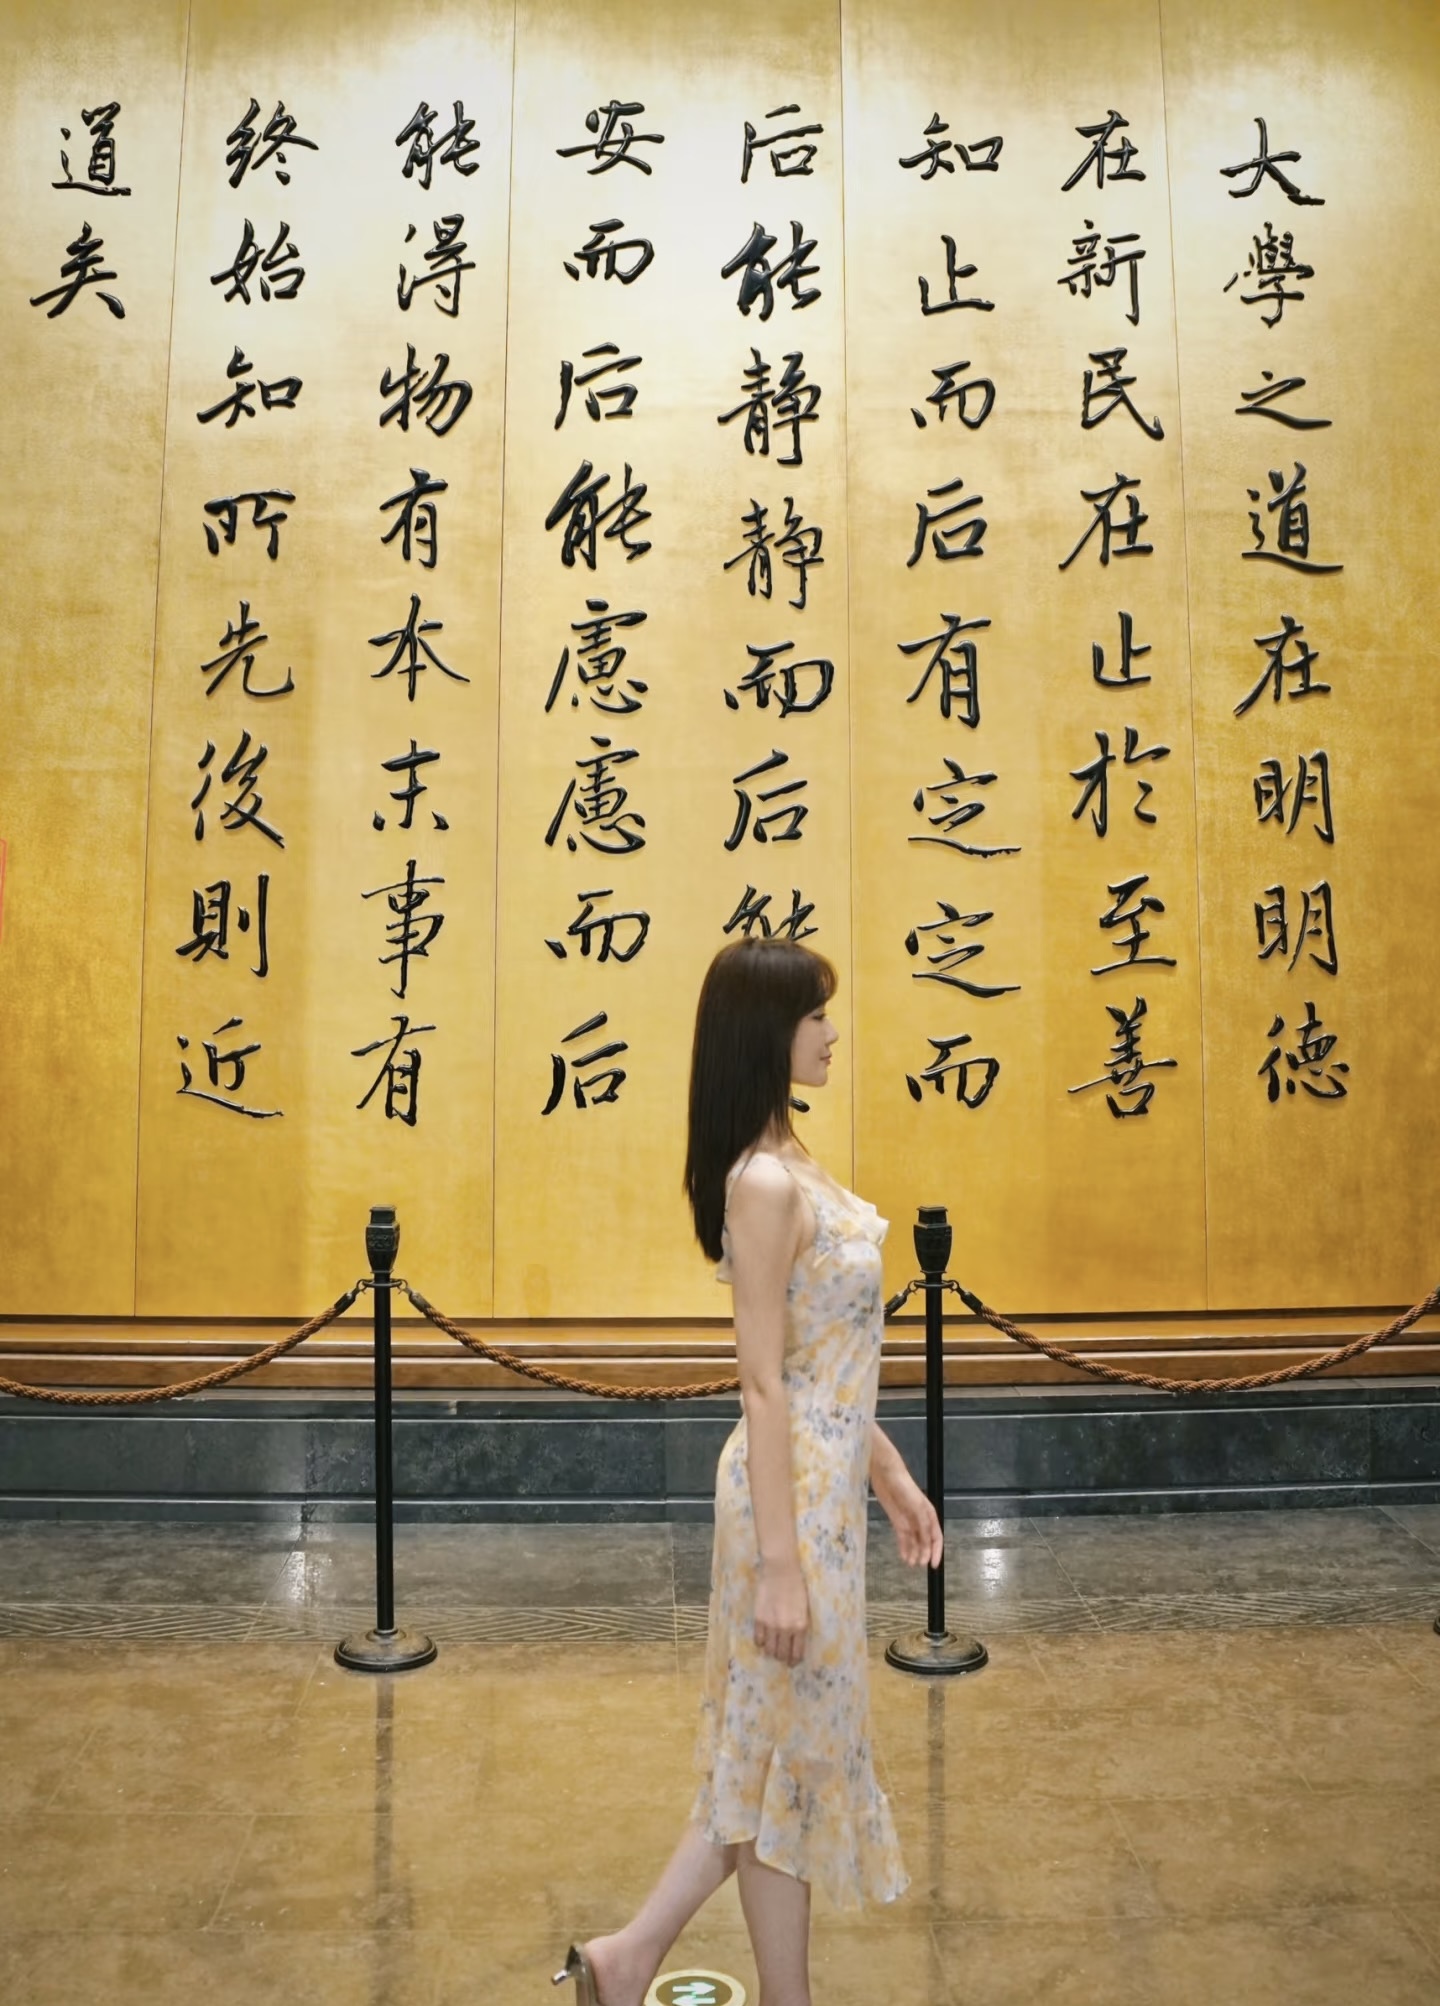 大學之道在明明德
在新民在止於至善
知止而后有定定而
后能静静而后能
安而后能慮慮而后
能得物有本末事有
終始知所先後則近
道矣